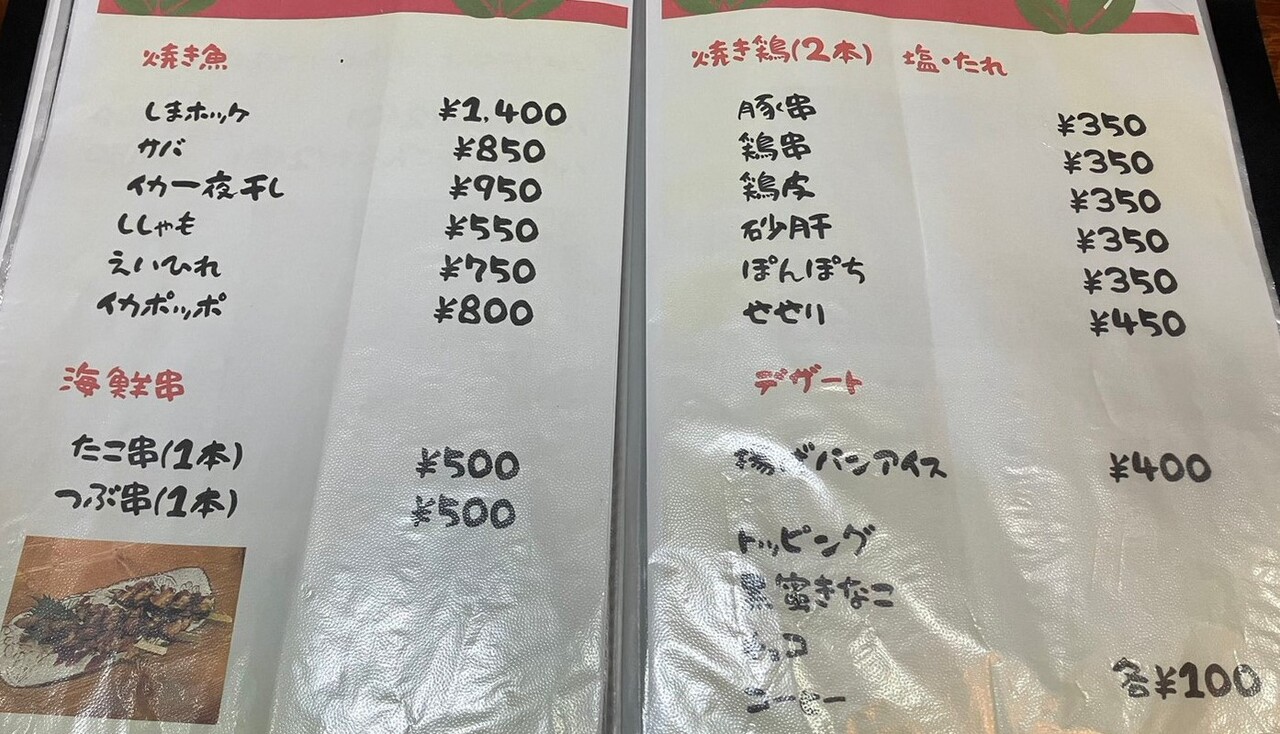 焼き魚
しまホッケ ¥1,400
サバ ¥850
イカ一夜干し ¥950
ししゃも ¥550
えいひれ ¥750
イカポッポ ¥800
海鮮串
たこ串(1本) ¥500
つぶ串(1本) ¥500
焼き鶏(2本) 塩・たれ
豚串 ¥350
鶏串 ¥350
鶏皮 ¥350
砂肝 ¥350
ぽんぽち ¥350
せせり ¥450
デザート
揚げパンアイス ¥400
トッピング
黒蜜きなこ
チョコ
コーヒー
各¥100